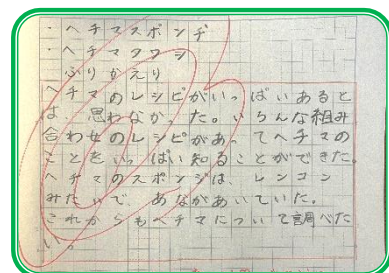 ・ヘチマスポンヂ
・ヘチマタワシ
ふりかえり
ヘチマのレシピがいっぱいあると
は、思わなかった。いろんな組み
合わせのレシピがあってヘチマの
ことをいっぱい知ることができた。
ヘチマのスポンジは、レンコン
みたいで、あながあいていた。
これからもヘチマについて調べた
い。